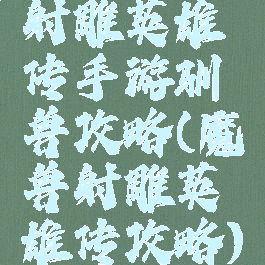 射雕英雄
传手游驯
兽攻略(魔
兽射雕英
雄传攻略)